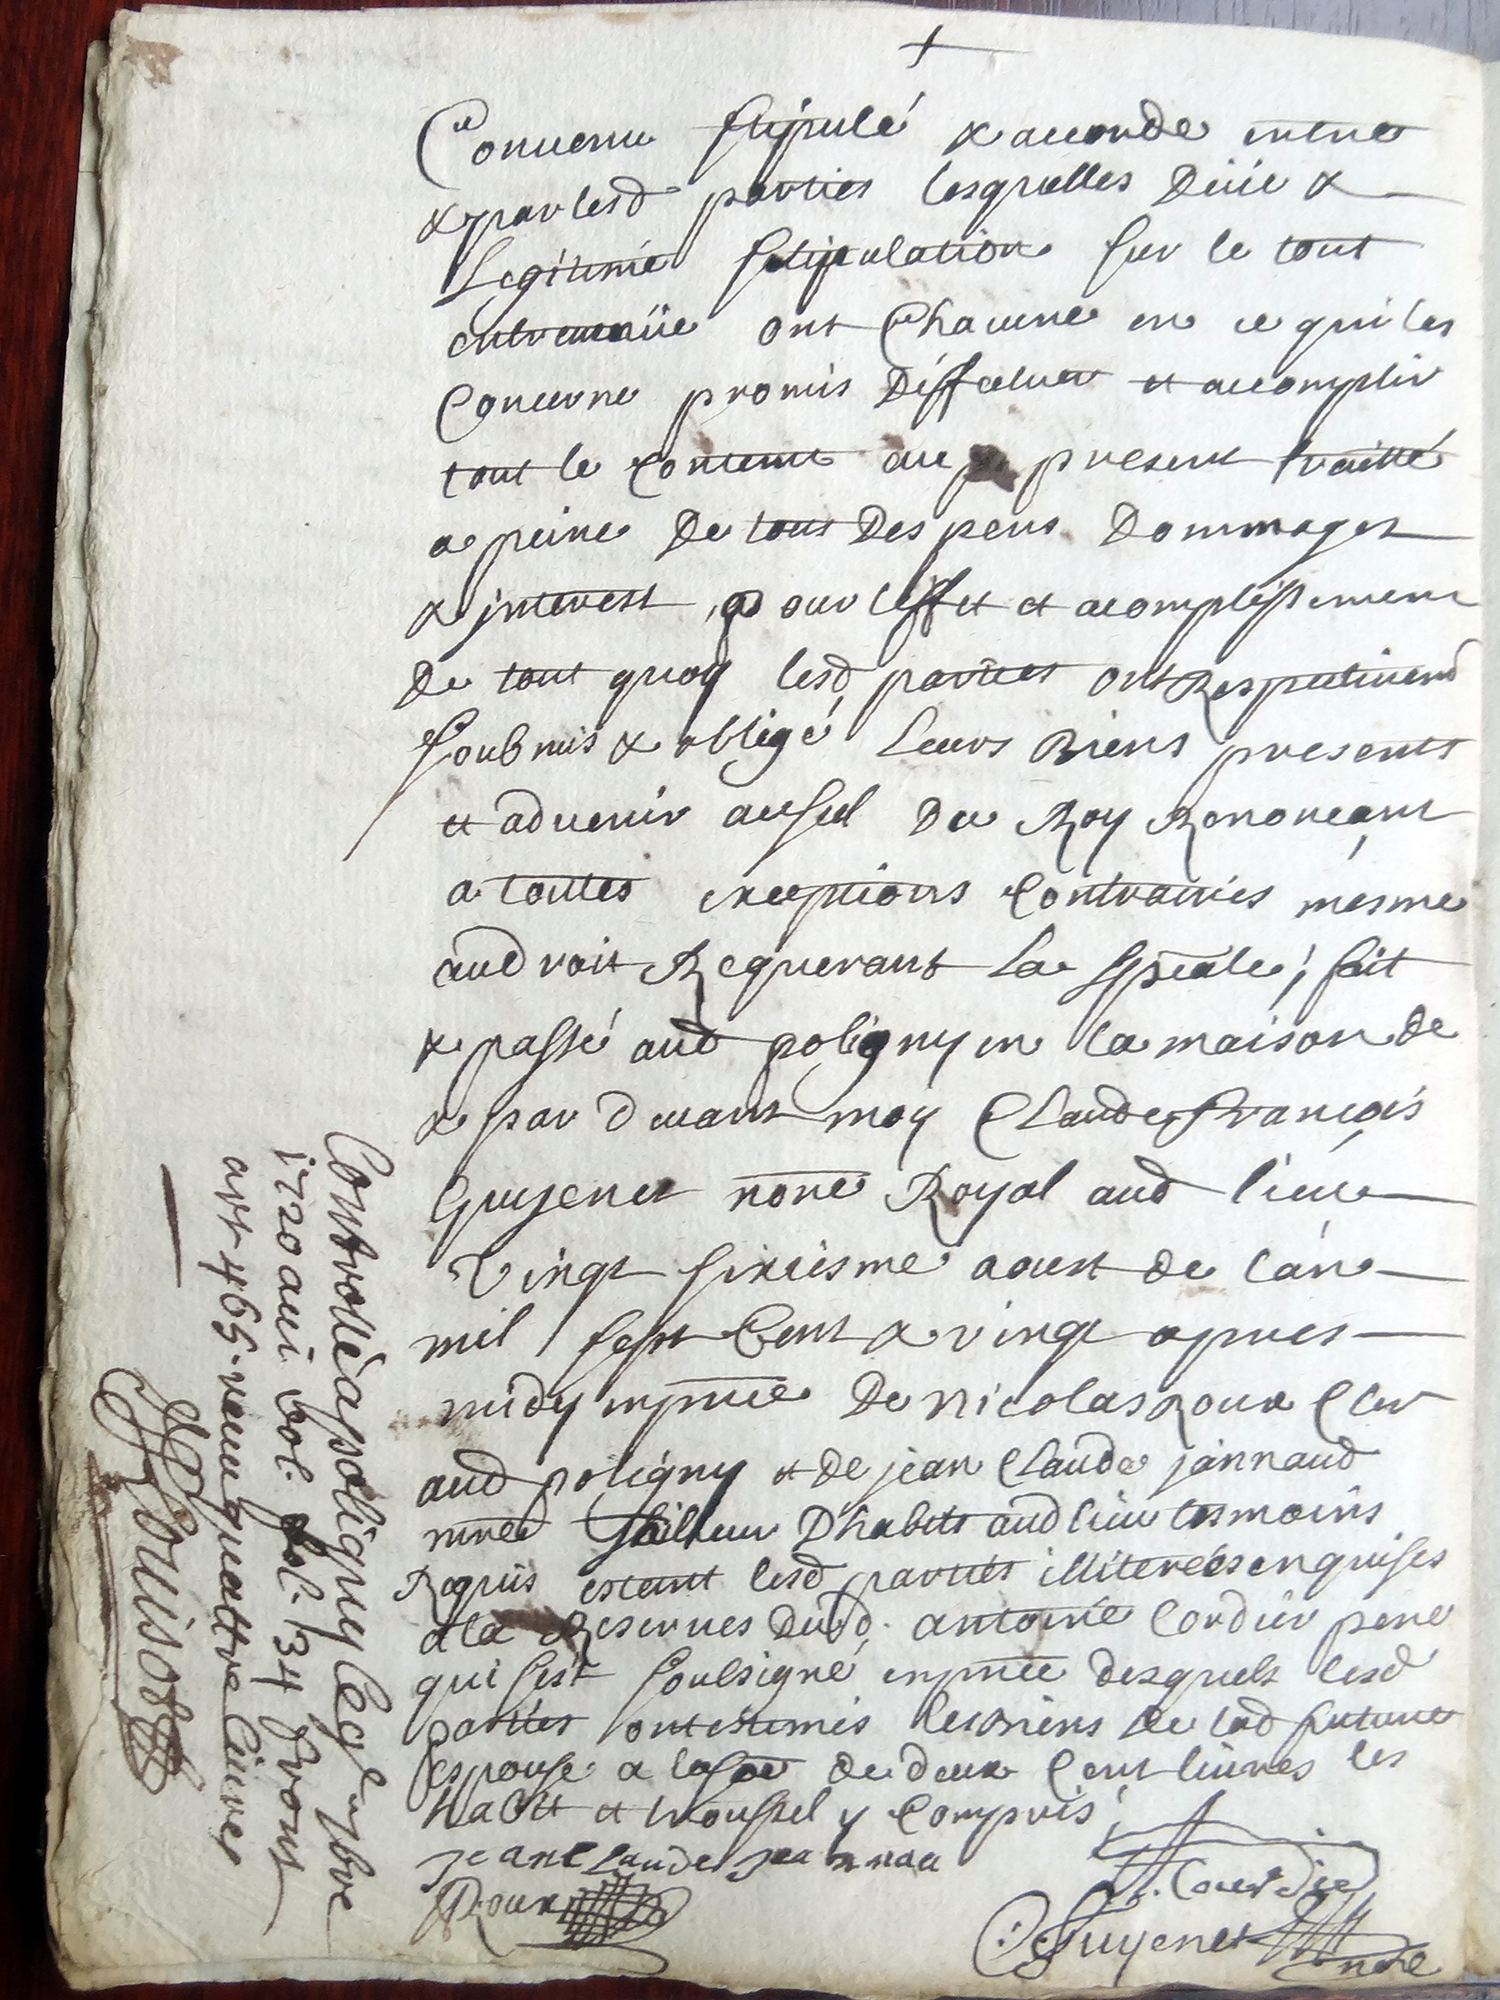 +
Conuenu stipulé & accorde entre
& par lesd parties lesquelles Deüe &
Legitime stipulation sur le tout
entreuenüe ont Chacune en ce qui les
Concerne promis Deffectuer et accomplir
tout le Contenu au present traitté
a peine De tous Despens Dommages
& jnterest, pour leffet et acomplissement
De tout quoy lesd parties ont Respectivemt
soubmis & obligé Leurs Biens presents
et aduenir au scel Du Roy Renonceant
a toutes exceptions Contraires mesme
aud roit Requerant La spéale, fait
& passé aud poligny en la maison de
& par deuant moy Claude François
Guyenet nore Royal aud lieu
Vingt sixiesme aoust de l'an
mil sept Cent & vingt apres
midy en pnce De Nicolas Roux Clerc
aud poligny et de jean Claude jannaud
mre tailleur Dhabits aud lieu tesmoins
Requis estant lesd parties illiterées enquises
a la Reserues Dud. antoine Cordier pere
qui s'est soubsigné en pnce desquels lesd
parties ont estimés les Biens de lad future
Espouse a la soe de deux Cent liures les
habit et troussel y Compris,
jean Claude jeannau
Roux
A. Courdie
C: f: Guyenet nore
Controllé a poligny le 9e 7bre
1720 aui vol. fol. 134 Ront
art 465. receu quattre liures